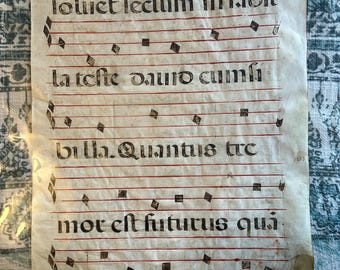 solvet seclum in favil
la teste david cum si
billa. Quantus tre
mor est futurus quã